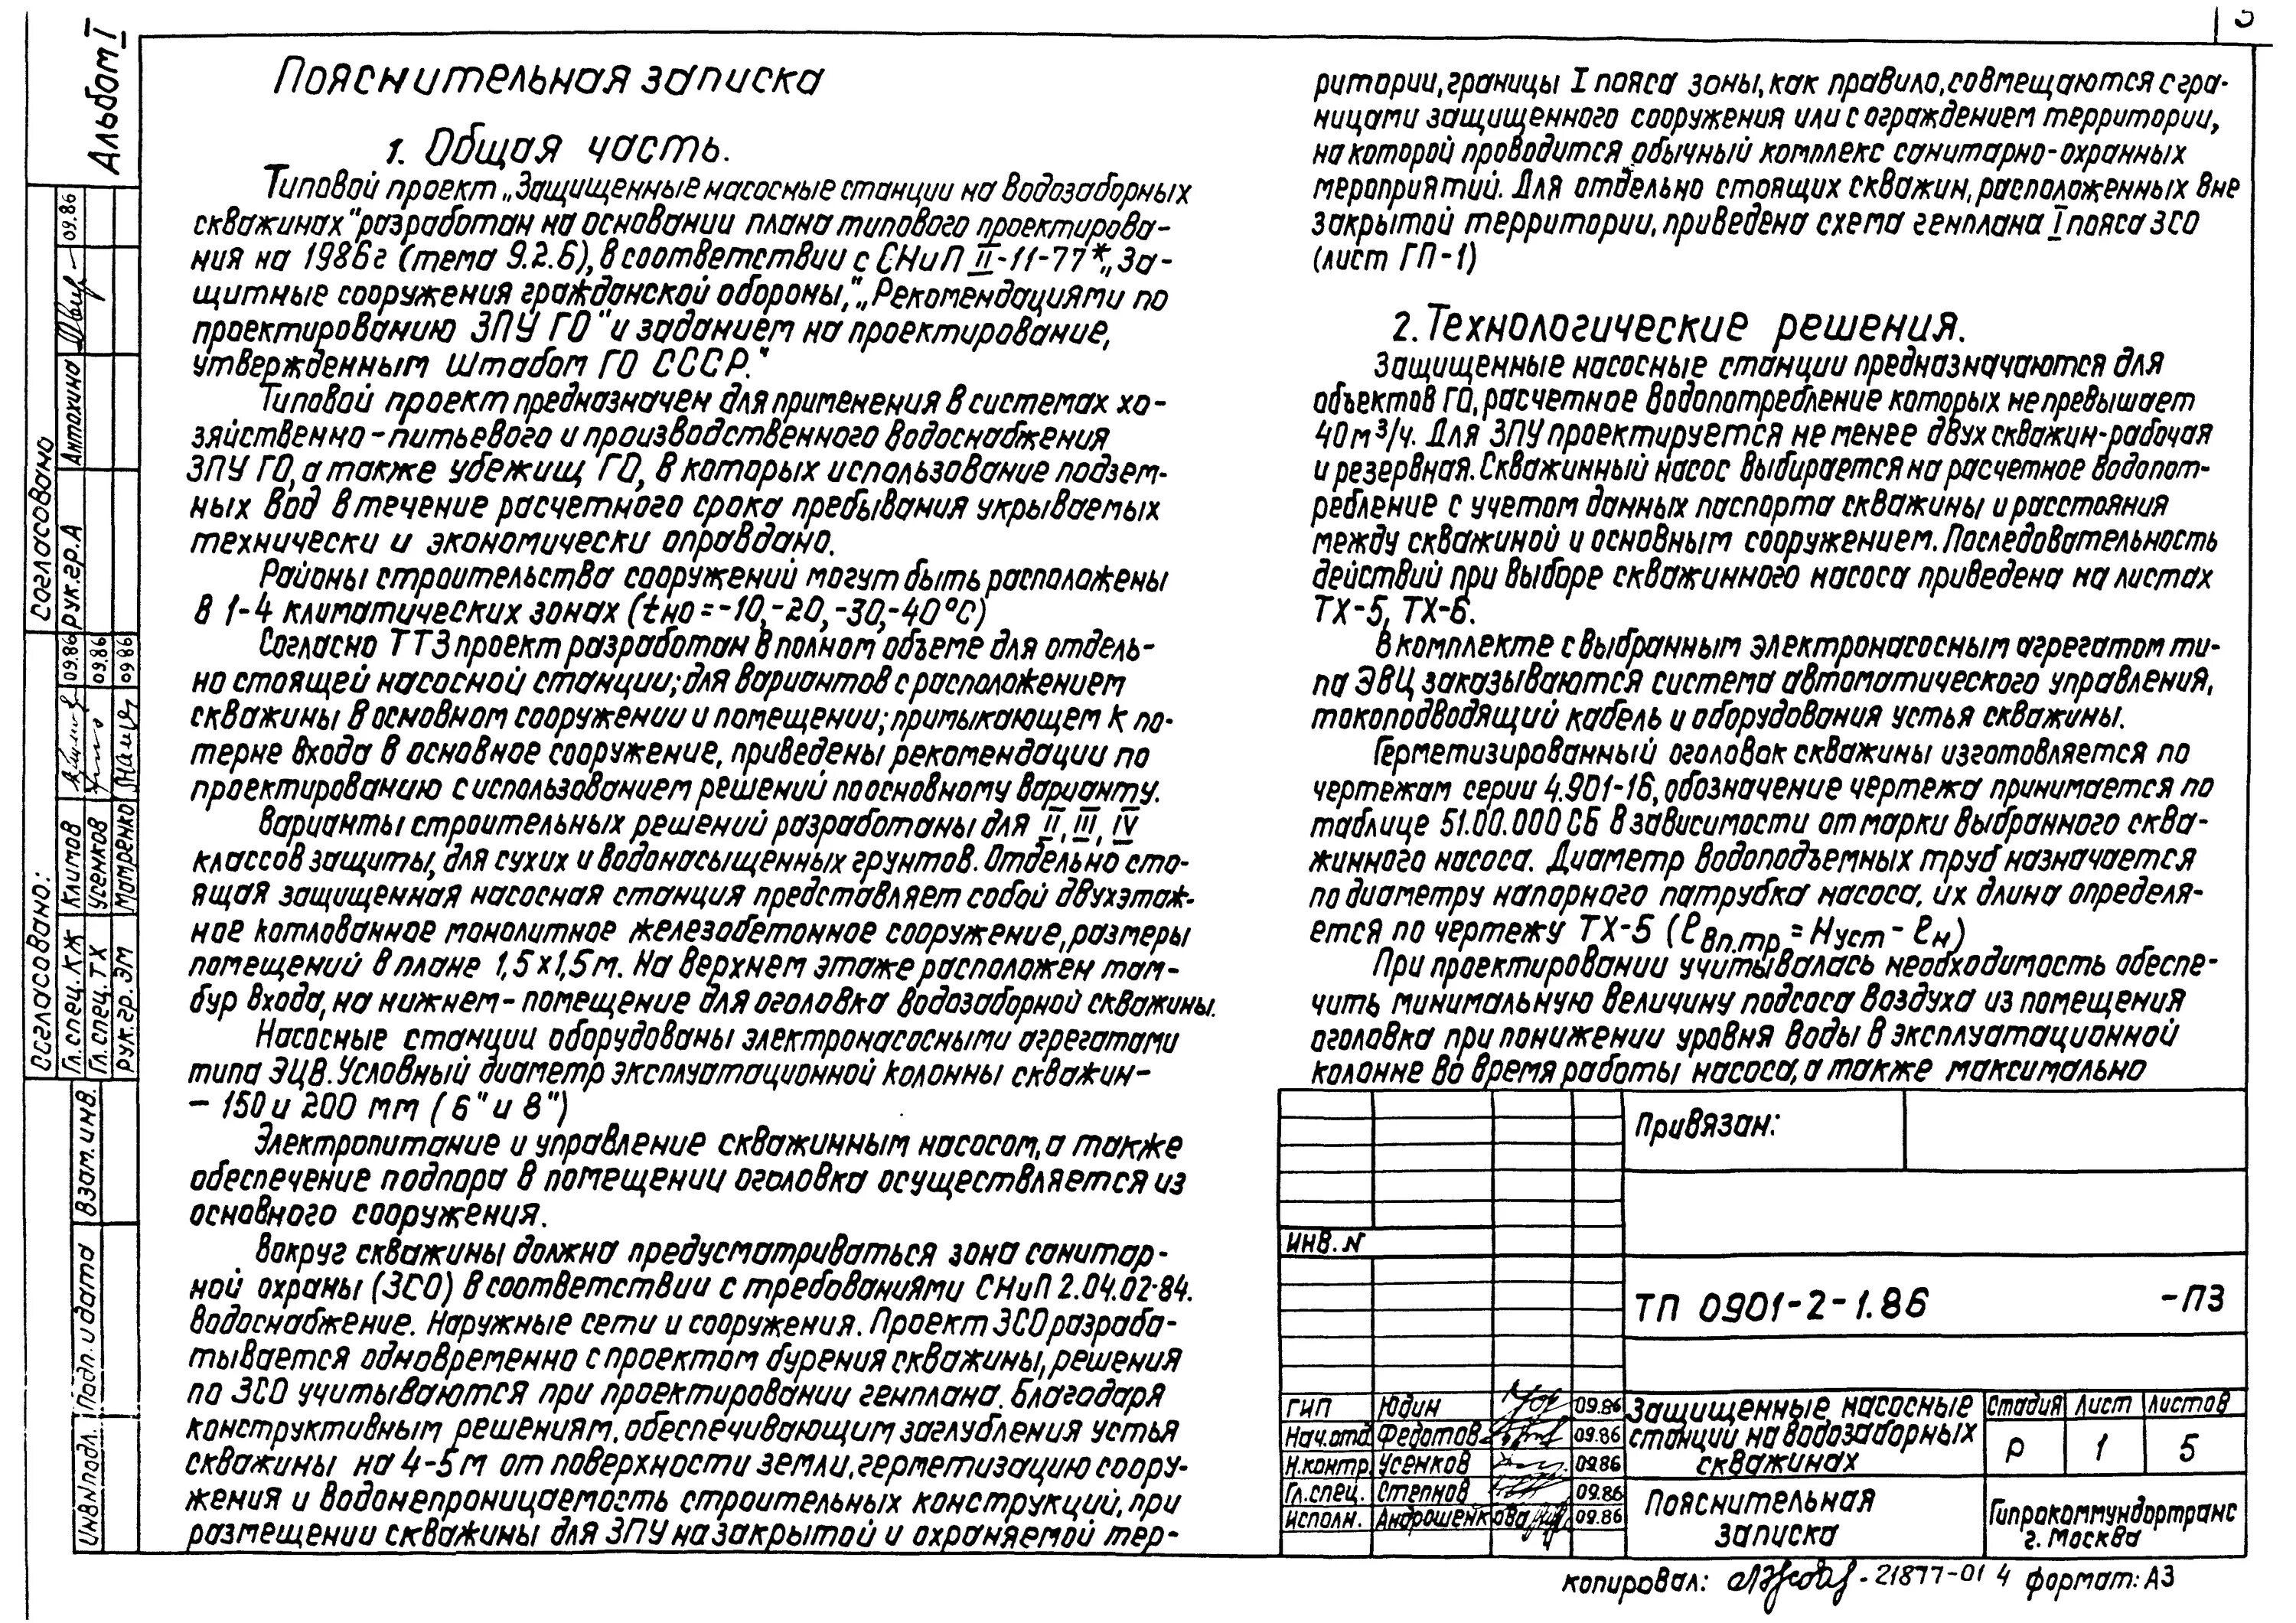 Альбом I
Пояснительная записка
1. Общая часть.
Типовой проект „Защищенные насосные станции на водозаборных
скважинах" разработан на основании плана типового проектирова-
ния на 1986г (тема 9.2.6), в соответствии с СНиП II-11-77*„За-
щитные сооружения гражданской обороны,"„Рекомендациями по
проектированию ЗПУ ГО" и заданием на проектирование,
утвержденным Штабом ГО СССР."
Типовой проект предназначен для применения в системах хо-
зяйственно-питьевого и производственного водоснабжения
ЗПУ ГО, а также убежищ ГО, в которых использование подзем-
ных вод в течение расчетного срока пребывания укрываемых
технически и экономически оправдано.
Районы строительства сооружений могут быть расположены
в 1-4 климатических зонах (tно=-10,-20,-30,-40°С)
Согласно ТТЗ проект разработан в полном объеме для отдель-
но стоящей насосной станции; для вариантов с расположением
скважины в основном сооружении и помещении; примыкающем к по-
терне входа в основное сооружение, приведены рекомендации по
проектированию с использованием решений по основному варианту.
Варианты строительных решений разработаны для II, III, IV
классов защиты, для сухих и водонасыщенных грунтов. Отдельно сто-
ящая защищенная насосная станция представляет собой двухэтаж-
ное котлованное монолитное железобетонное сооружение, размеры
помещений в плане 1,5х1,5м. На верхнем этаже расположен там-
бур входа, на нижнем - помещение для оголовка водозаборной скважины.
Насосные станции оборудованы электронасосными агрегатами
типа ЭЦВ. Условный диаметр эксплуатационной колонны скважин-
- 150 и 200 мм (6" и 8")
Электропитание и управление скважинным насосом, а также
обеспечение подпора в помещении оголовка осуществляется из
основного сооружения.
Вокруг скважины должна предусматриваться зона санитар-
ной охраны (ЗСО) в соответствии с требованиями СНиП 2.04.02-84.
Водоснабжение. Наружные сети и сооружения. Проект ЗСО разраба-
тывается одновременно с проектом бурения скважины, решения
по ЗСО учитываются при проектировании генплана. Благодаря
конструктивным решениям, обеспечивающим заглубления устья
скважины на 4-5м от поверхности земли, герметизацию соору-
жения и водонепроницаемость строительных конструкций, при
размещении скважины для ЗПУ на закрытой и охраняемой тер-
ритории, границы I пояса зоны, как правило, совмещаются с гра-
ницами защищенного сооружения или с ограждением территории,
на которой проводится обычный комплекс санитарно-охранных
мероприятий. Для отдельно стоящих скважин, расположенных вне
закрытой территории, приведена схема генплана I пояса ЗСО
(лист ГП-1)
2. Технологические решения.
Защищенные насосные станции предназначаются для
объектов ГО, расчетное водопотребление которых не превышает
40 м³/ч. Для ЗПУ проектируется не менее двух скважин-рабочая
и резервная. Скважинный насос выбирается на расчетное водопот-
ребление с учетом данных паспорта скважины и расстояния
между скважиной и основным сооружением. Последовательность
действий при выборе скважинного насоса приведена на листах
ТХ-5, ТХ-6.
В комплекте с выбранным электронасосным агрегатом ти-
па ЭВЦ заказываются система автоматического управления,
токоподводящий кабель и оборудования устья скважины.
Герметизированный оголовок скважины изготовляется по
чертежам серии 4.901-16, обозначение чертежа принимается по
таблице 51.00.000 СБ в зависимости от марки выбранного сква-
жинного насоса. Диаметр водоподъемных труб назначается
по диаметру напорного патрубка насоса, их длина определя-
ется по чертежу ТХ-5 (ℓвп.тр.=Hуст-ℓн)
При проектировании учитывалась необходимость обеспе-
чить минимальную величину подсоса воздуха из помещения
оголовка при понижении уровня воды в эксплуатационной
колонне во время работы насоса, а также максимально
согласовано
рук.гр.А Антохина 09.86
Осгласовано:
Гл.спец.КЖ Климов 09.86
Гл.спец.ТХ Усенков 09.86
рук.гр.ЭМ Мамренко 09 86
Инв№подл. Подп. и дата Взам.инв.
Привязан:
ИНВ. N
ТП 0901-2-1.86 -ПЗ
ГИП Юдин 09.86
Нач.отд. Федотов 09.86
Н.контр. Усенков 09.86
Гл.спец. Степнов 09.86
Исполн. Андрошенкова 09.86
Защищенные насосные
станции на водозаборных
скважинах
Стадия Лист Листов
Р 1 5
Пояснительная
записка
Гипрокоммундортранс
г. Москва
копировал: 21877-01 4 формат: А3